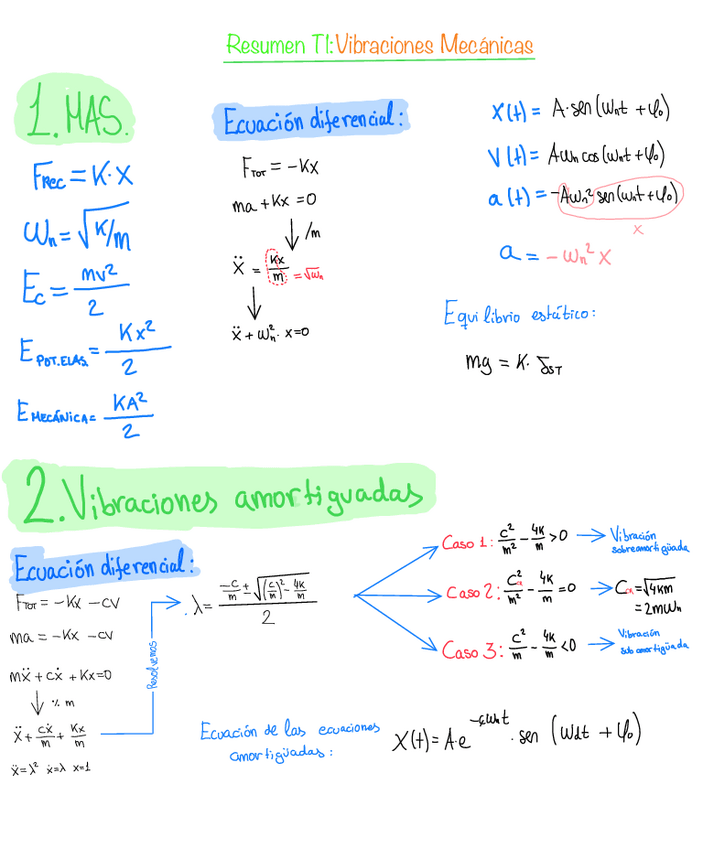 Resumen T1: Vibraciones Mecánicas
1. MAS.
F_REC = K · X
ω_n = √K/m
E_c = mv²/2
E_POT.ELAS. = Kx²/2
E_MECÁNICA = KA²/2
Ecuación diferencial:
F_TOT = -Kx
ma + Kx = 0
/m
ẍ = Kx/m = √ω_n
ẍ + ω_n² · x = 0
X(t) = A · sen(ω_n t + φ₀)
V(t) = Aω_n cos(ω_n t + φ₀)
a(t) = -Aω_n² sen(ω_n t + φ₀)
x
a = -ω_n² X
Equilibrio estático:
mg = K · δ_ST
2. Vibraciones amortiguadas
Ecuación diferencial:
F_TOT = -Kx - cv
ma = -Kx - cv
mẍ + cẋ + Kx = 0
% m
ẍ + cẋ/m + Kx/m
ẍ = λ² ẋ = λ x = 1
Resolvemos
λ = (-c/m ± √((c/m)² - 4K/m))/2
Caso 1: c²/m² - 4K/m > 0 → Vibración sobreamortigüada
Caso 2: c²/m² - 4K/m = 0 → C = √4Km
= 2mω_n
Caso 3: c²/m - 4K/m < 0 → Vibración sub amortigüada
Ecuación de las ecuaciones
amortigüadas:
X(t) = A · e^(-ξω_n t) · sen (ω_d t + φ₀)